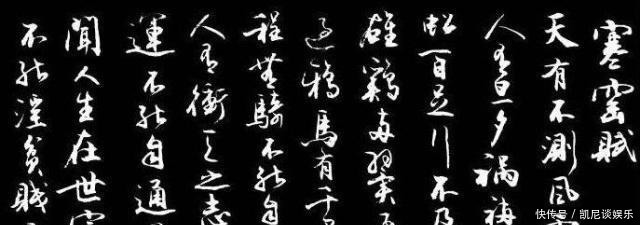 寒窑賦
天有不測風
人有旦夕禍福
蚣百足行不及
雄鷄兩翼
過鴉馬有千
程無騎不能自
人有衝天之志
運不能自通
聞人生在世
不能淫貧賤
快传号 / 凯尼谈娱乐